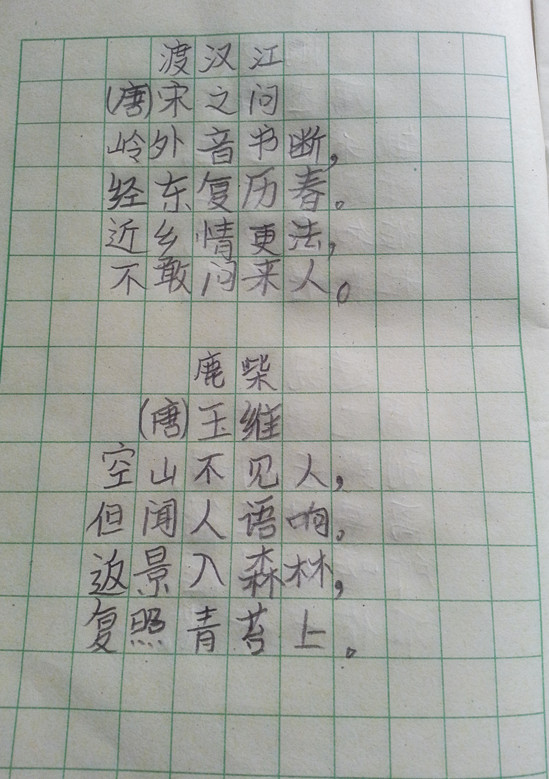 渡汉江
(唐)宋之问
岭外音书断,
经东复历春。
近乡情更法,
不敢问来人。
鹿柴
(唐)玉维
空山不见人,
但闻人语响。
返景入森林,
复照青苔上。